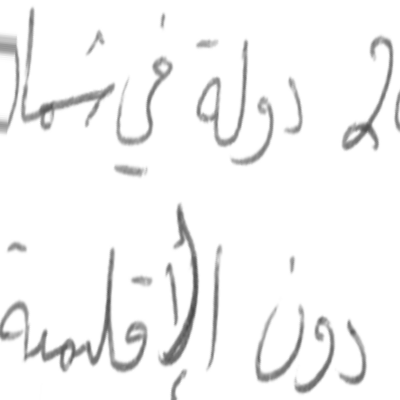 دولة في شمال
دون الإقليمية